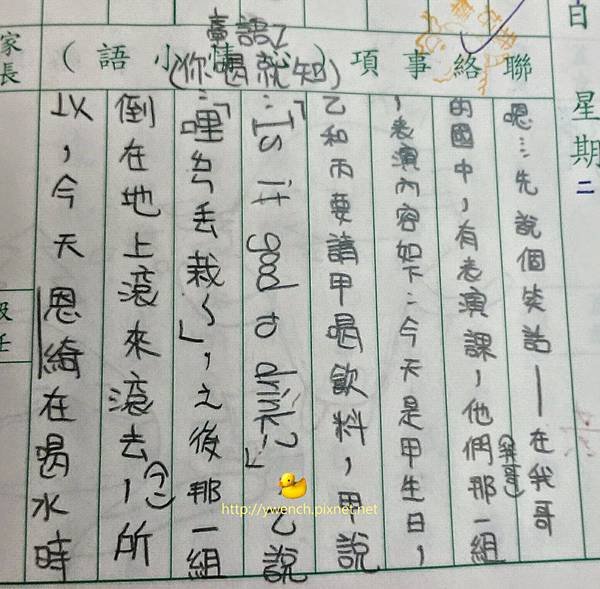 日
星期二
聯絡事項
語小
臺語
(你喝就知)
嗯…先說個笑話—在我哥
的國中,有表演課,他們那一組
(我哥)
,表演內容如下:今天是甲生日,
乙和丙要請甲喝飲料,甲說
:「Is it good to drink?」乙說
:「哩丟栽ㄟ」,之後那一組
倒在地上滾來滾去,所
以,今天恩綺在喝水時
家長
級任
http://ywench.pixnet.net